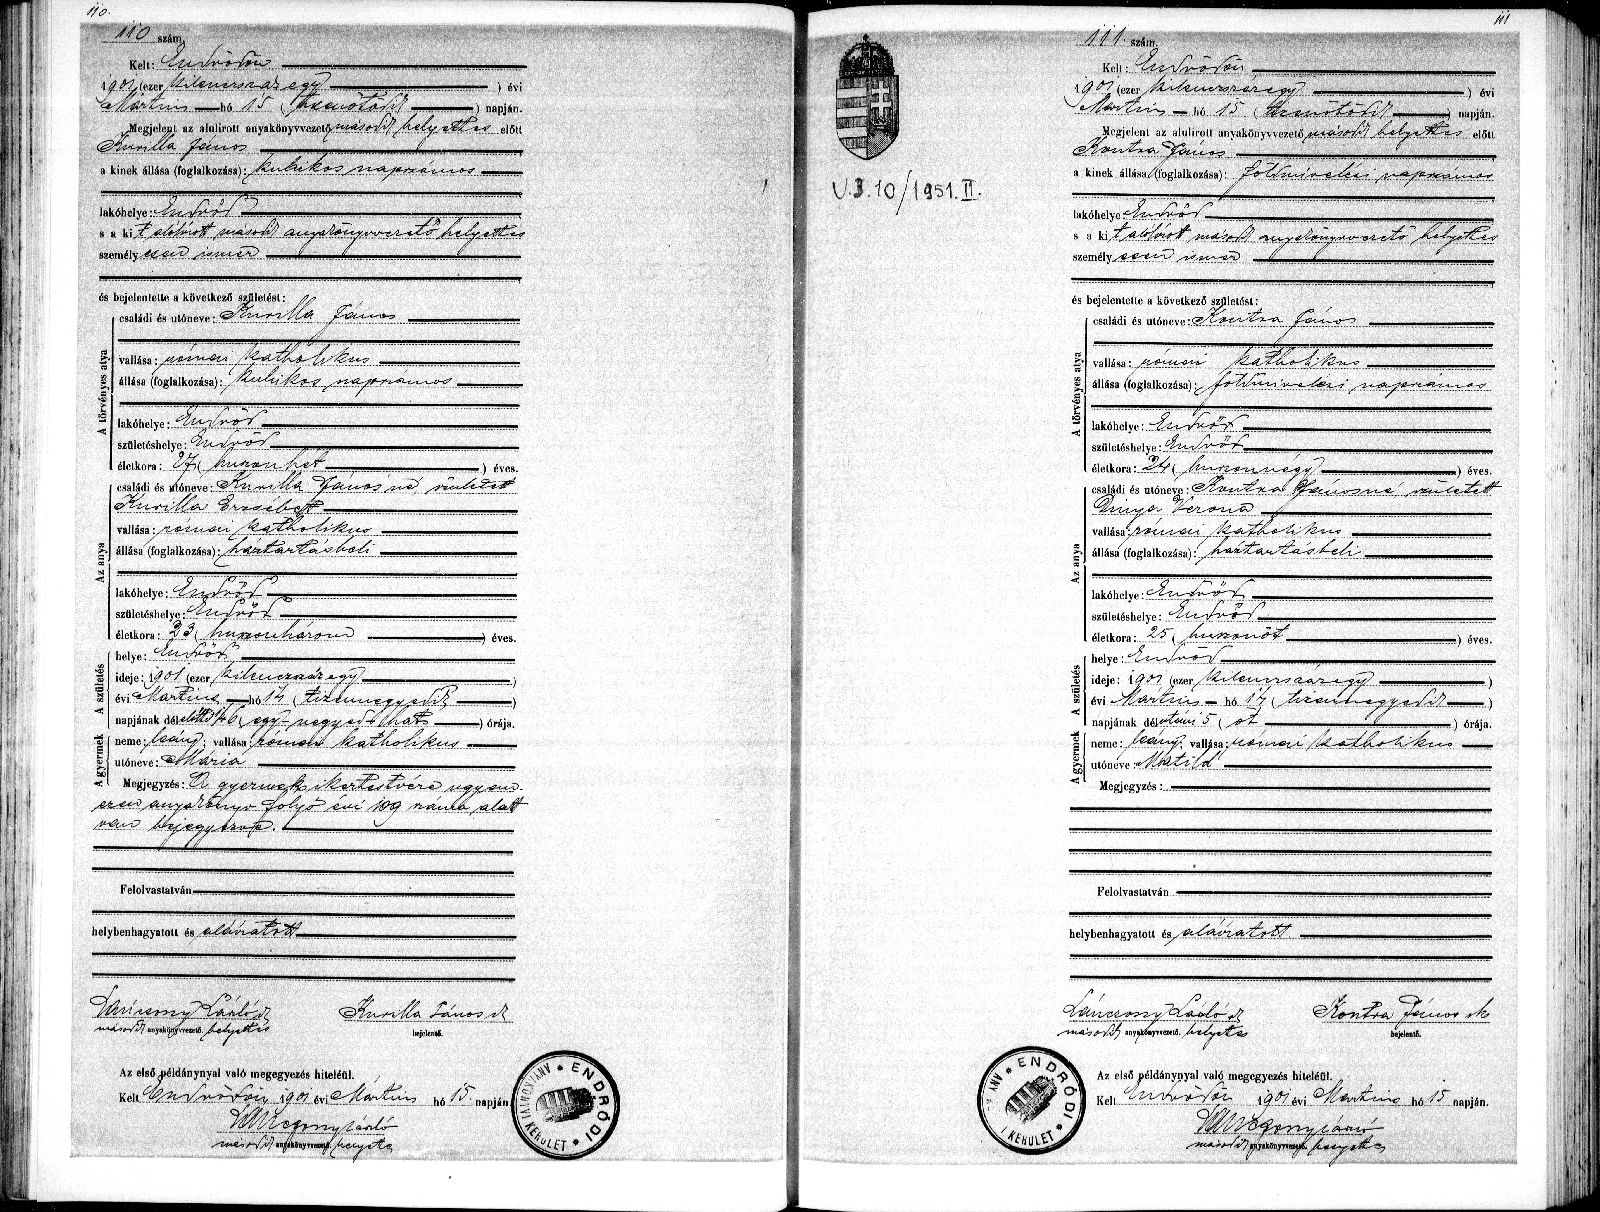 110.
110 szám.
Kelt: Endrődön
1901 (ezer kilenczszázegy) évi
Mártius hó 15 (tizenötödik) napján.
Megjelent az alulirott anyakönyvvezető másodh helyettes előtt
Kurilla János
a kinek állása (foglalkozása): kubikos napszámos
lakóhelye: Endrőd
s a kit alólirott másodh anyakönyvvezető helyettes
személyesen ismer
és bejelentette a következő születést:
A törvényes atya
családi és utóneve: Kurilla János
vallása: római katholikus
állása (foglalkozása): kubikos napszámos
lakóhelye: Endrőd
születéshelye: Endrőd
életkora: 27 (huszonhét) éves.
Az anya
családi és utóneve: Kurilla Jánosné született
Kurilla Erzsébet
vallása: római katholikus
állása (foglalkozása): háztartásbeli
lakóhelye: Endrőd
születéshelye: Endrőd
életkora: 23 (huszonhárom) éves.
A születés
helye: Endrőd
ideje: 1901 (ezer kilenczszázegy)
évi Mártius hó 14 (tizennegyedik)
napjának délelőtti 1/4 6 (egy negyed hat) órája.
A gyermek
neme: leány; vallása: római katholikus
utóneve: Mária
Megjegyzés: A gyermek ikertestvére ugyan-
ezen anyakönyv folyó évi 109 száma alatt
van bejegyezve.
Felolvastatván
helybenhagyatott és aláiratott
Lánczony László h
másodh anyakönyvvezető. helyettes
Kurilla János k
bejelentő.
Az első példánynyal való megegyezés hiteléül.
Kelt Endrődön 1901 évi Mártius hó 15. napján
Lánczony László
másodh anyakönyvvezető. helyettes
ENDRŐDI ANYAKÖNYVI KERÜLET
111
111. szám.
V.3.10/1951.II.
Kelt: Endrődön
1901 (ezer kilenczszázegy) évi
Mártius hó 15 (tizenötödik) napján.
Megjelent az alulirott anyakönyvvezető másodh helyettes előtt
Kontra János
a kinek állása (foglalkozása): földmivelési napszámos
lakóhelye Endrőd
s a kit alólirott másodh anyakönyvvezető helyettes
személyesen ismer
és bejelentette a következő születést:
A törvényes atya
családi és utóneve: Kontra János
vallása: római katholikus
állása (foglalkozása): földmivelési napszámos
lakóhelye: Endrőd
születéshelye: Endrőd
életkora: 24 (huszonnégy) éves.
Az anya
családi és utóneve: Kontra Jánosné született
Dinya Verona
vallása: római katholikus
állása (foglalkozása): háztartásbeli
lakóhelye: Endrőd
születéshelye: Endrőd
életkora: 25 (huszonöt) éves.
A születés
helye: Endrőd
ideje: 1901 (ezer kilenczszázegy)
évi Mártius hó 14 (tizennegyedik)
napjának délutáni 5 (öt) órája.
A gyermek
neme: leány; vallása: római katholikus
utóneve: Matild
Megjegyzés:
Felolvastatván
helybenhagyatott és aláiratott.
Lánczony László h
másodh anyakönyvvezető. helyettes
Kontra János k
bejelentő.
Az első példánynyal való megegyezés hiteléül.
Kelt Endrődön 1901 évi Mártius hó 15 napján.
Lánczony László
másodh anyakönyvvezető. helyettes
ENDRŐDI ANYAK. I KERÜLET